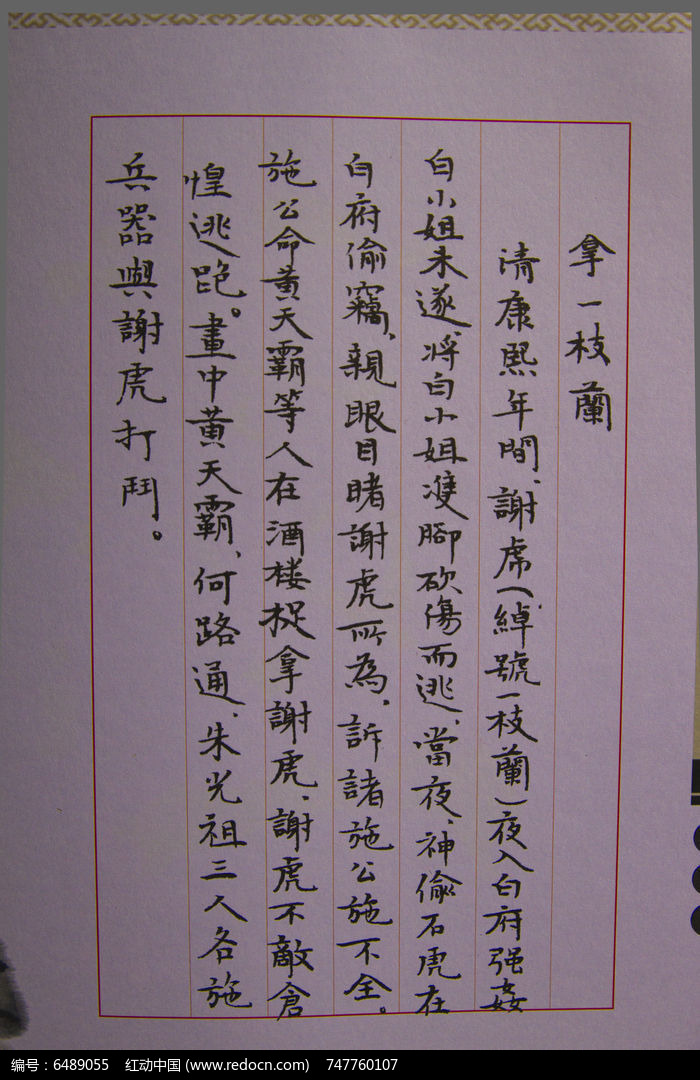 拿一枝蘭
清康熙年間、謝虎（綽號一枝蘭）夜入白府强姦
白小姐未遂、将白小姐雙腳砍傷而逃、當夜、神偷石虎在
白府偷竊、親眼目睹謝虎所為、訴諸施公施不全。
施公命黃天霸等人在酒楼捉拿謝虎、謝虎不敵倉
惶逃跑。畫中黃天霸、何路通、朱光祖三人各施
兵器與謝虎打鬥。
编号：6489055 红动中国 (www.redocn.com) 747760107